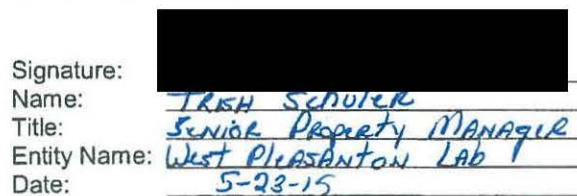 Signature:
Name: TRISH SCHULER
Title: SENIOR PROPERTY MANAGER
Entity Name: West PleASANTON LAB
Date: 5-23-15